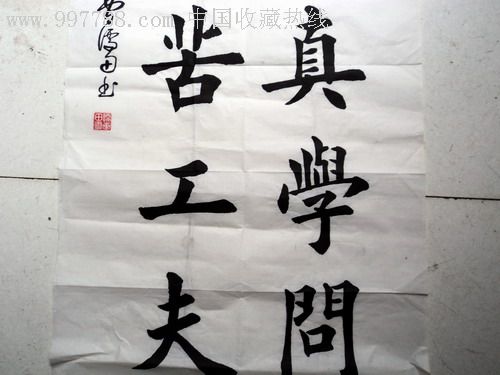 www.997788.com 中国收藏热线
真學問
苦工夫
田书